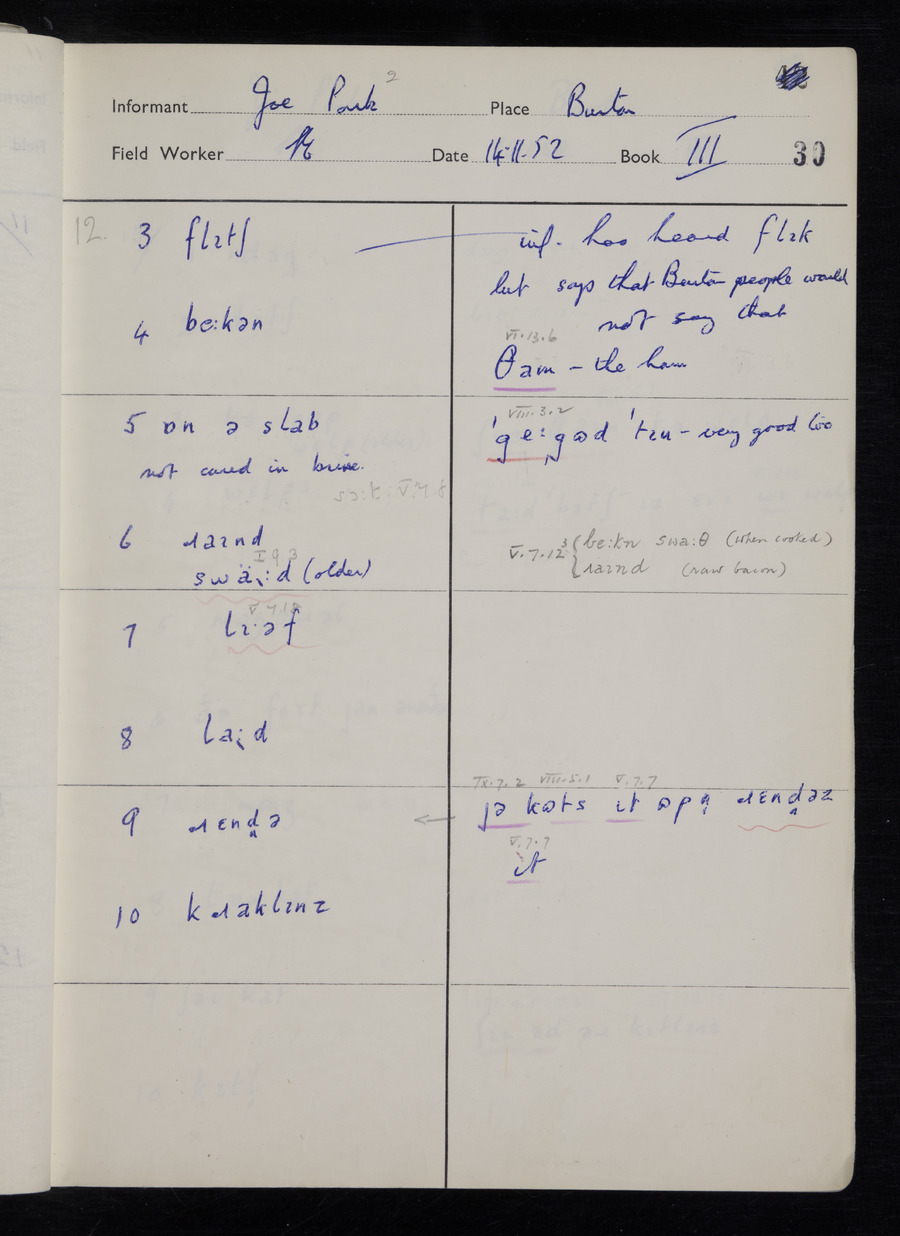 Informant Joe Pork 2 Place Burton
Field Worker Date 14.11.52 Book III 30
12. 3 flɪtʃ
inf. has heard flɪk
but says that Burton people would
not say that
4 be:kən
VI.13.6
θam – the ham
5 ɒn ə slab
not cured in brine.
VIII.3.2
ˈge:gɷd ˈtɪu – very good too
6 ɹaɪnd
I 9 3
swä:d (older)
V.7.12 3 be:kn swa:θ (when cooked)
ɹaɪnd (raw bacon)
7 lɪ·əf
8 la:d
9 ɹɛndə
IX.7.2 VIII.5.1 V.7.7
jə kɷts ɪt ɷp ɹɛndəz
V.7.7
ɪt
10 kɹaklɪnz